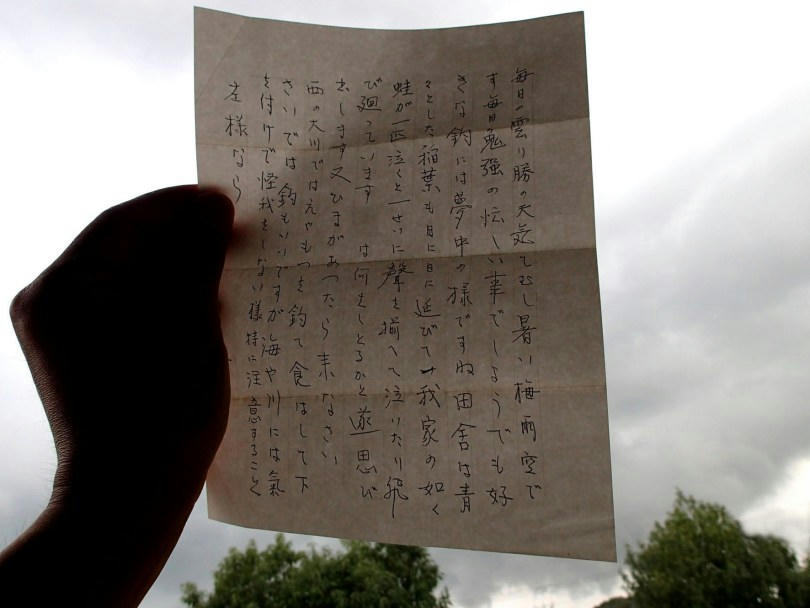 毎日の雲り勝の天気でむし暑い梅雨空で
す毎日勉強の忙しい事でしようでも好
きな釣には夢中の様ですね田舎は青
々とした稲葉も日に日に延びて我家の如く
蛙が一匹泣くと一せいに聲を揃へて泣いたり飛
び廻っています は何をしとるかと遂思ひ
出します又ひまがあつたら来なさい
西の大川ではえやもつを釣て食はして下
さいでは 釣もいいですが海や川には氣
を付けて怪我をしない様特に注意すること
左様なら